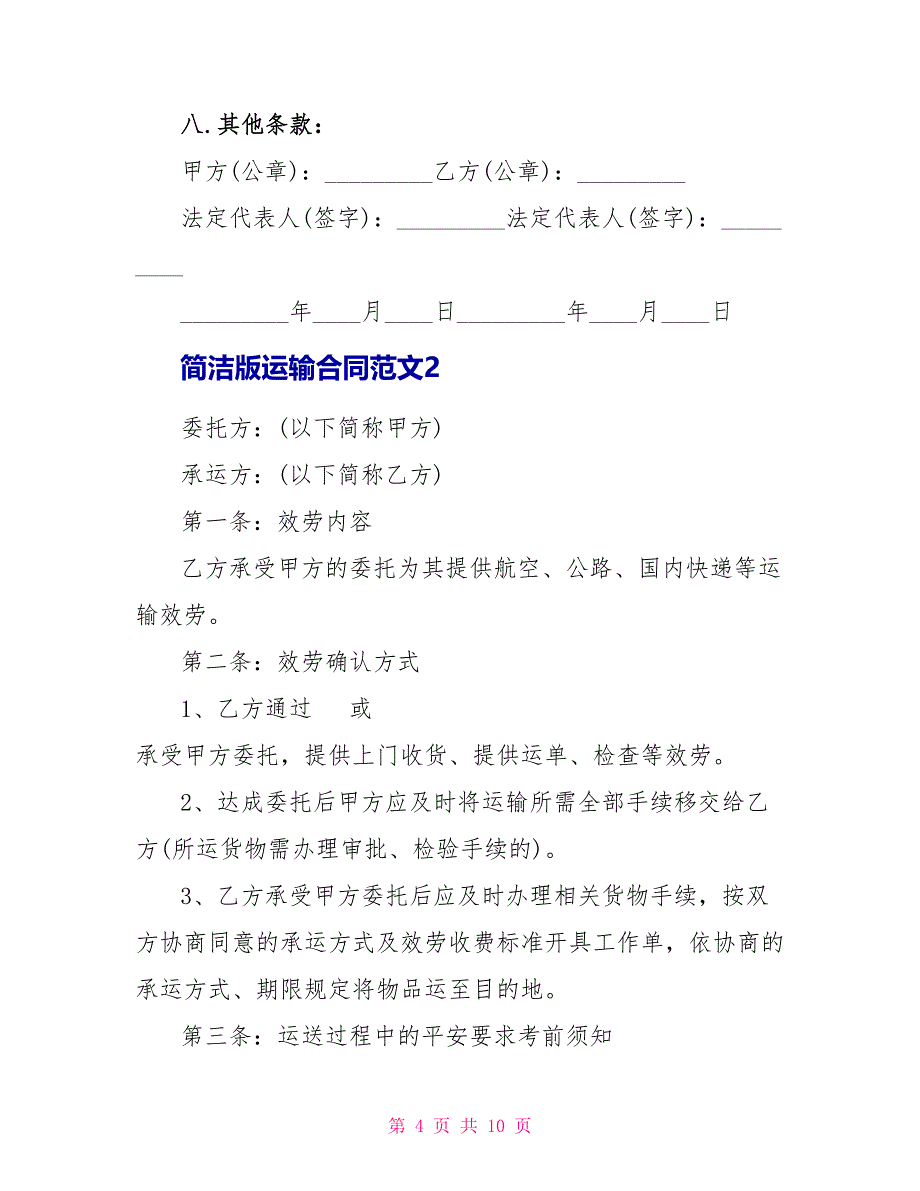 八.其他条款：
甲方(公章)：_________乙方(公章)：_________
法定代表人(签字)：_________法定代表人(签字)：_____
____
_________年____月____日_________年____月____日
简洁版运输合同范文2
委托方：(以下简称甲方)
承运方：(以下简称乙方)
第一条：效劳内容
乙方承受甲方的委托为其提供航空、公路、国内快递等运
输效劳。
第二条：效劳确认方式
1、乙方通过 或
承受甲方委托，提供上门收货、提供运单、检查等效劳。
2、达成委托后甲方应及时将运输所需全部手续移交给乙
方(所运货物需办理审批、检验手续的)。
3、乙方承受甲方委托后应及时办理相关货物手续，按双
方协商同意的承运方式及效劳收费标准开具工作单，依协商的
承运方式、期限规定将物品运至目的地。
第三条：运送过程中的平安要求考前须知
第 4 页 共 10 页